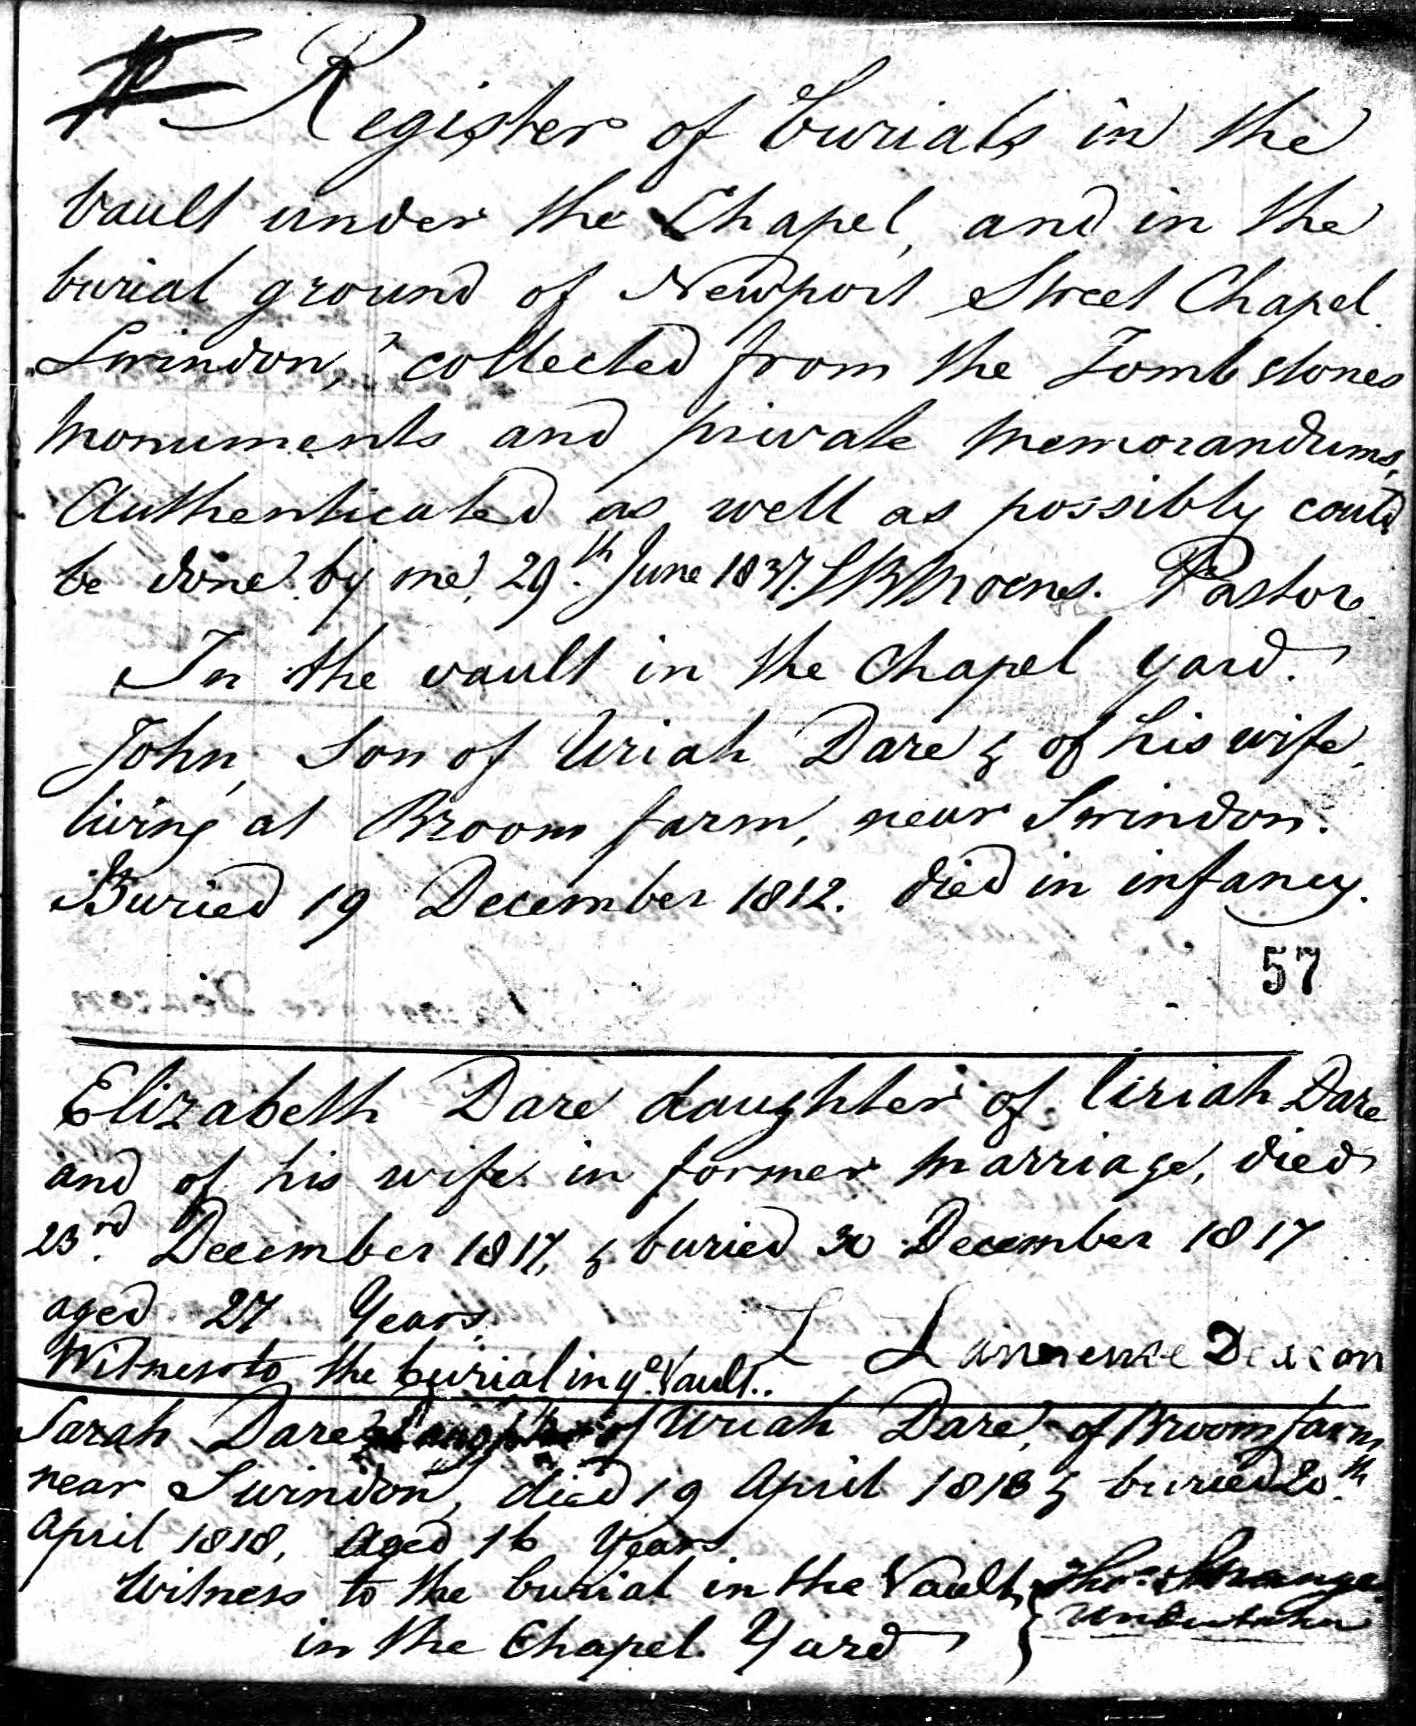 Register of burials in the
vault under the Chapel, and in the
burial ground of Newport Street Chapel
Swindon, collected from the Tomb stones
Monuments and private Memorandums,
Authenticated as well as possibly could
be done by me, 29.th June 1837. Pastor
In the vault in the Chapel yard.
John, Son of Uriah Dare & of his wife,
living at Broom farm, near Swindon.
Buried 19 December 1812. died in infancy.
57
Elizabeth Dare daughter of Uriah Dare
and of his wife in former Marriage, died
23.rd December 1817, & buried 30 December 1817
aged 27 Years.
Lawrence Deacon
Witness to the burial in ye. Vault..
Sarah Dare daughter of Uriah Dare, of Broom farm
near Swindon, died 19 April 1818 & buried 20.th
April 1818, aged 16 Years
Witness to the burial in the Vault, Thos. Strange
Undertaker
in the Chapel Yard